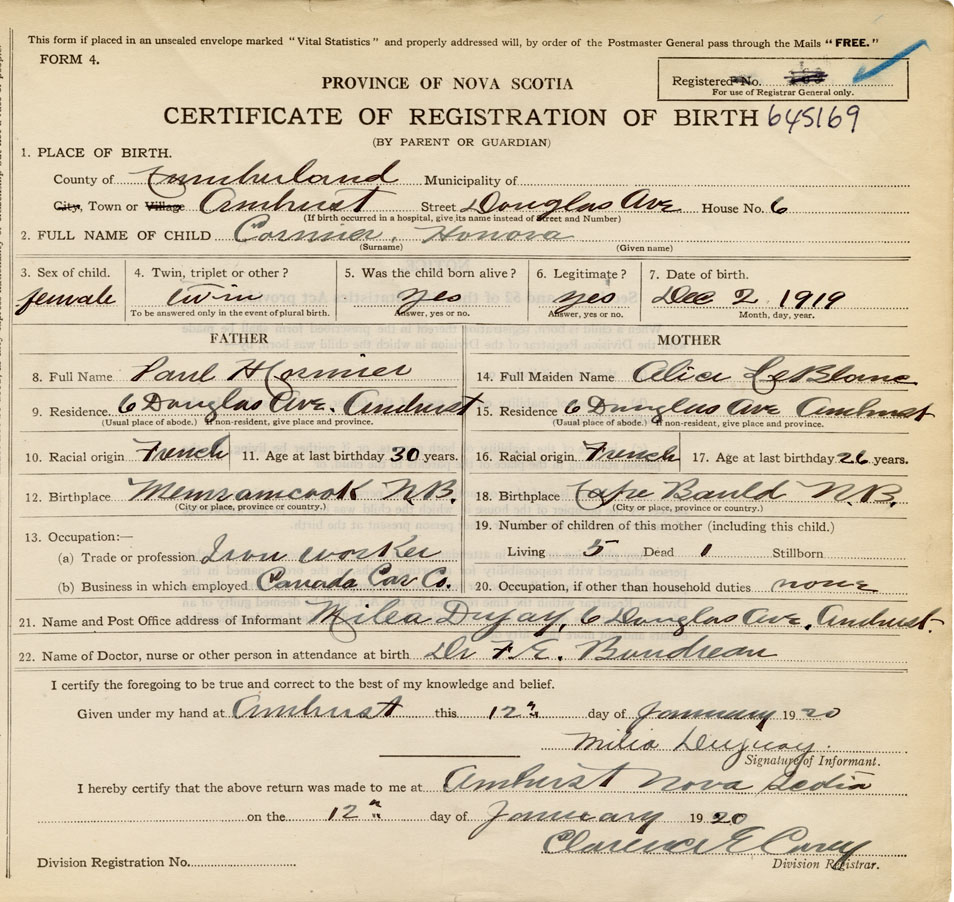 This form if placed in an unsealed envelope marked "Vital Statistics" and properly addressed will, by order of the Postmaster General pass through the Mails "FREE."
FORM 4.
Registered No.
For use of Registrar General only.
PROVINCE OF NOVA SCOTIA
CERTIFICATE OF REGISTRATION OF BIRTH 645169
(BY PARENT OR GUARDIAN)
1. PLACE OF BIRTH.
County of Cumberland Municipality of
City, Town or Village Amherst Street Douglas Ave House No. 6
(If birth occurred in a hospital, give its name instead of Street and Number)
2. FULL NAME OF CHILD Cormier, Honora
(Surname) (Given name)
3. Sex of child. 4. Twin, triplet or other? 5. Was the child born alive? 6. Legitimate? 7. Date of birth.
female twin yes yes Dec 2 1919
To be answered only in the event of plural birth. Answer, yes or no. Answer, yes or no. Month, day, year.
FATHER MOTHER
8. Full Name Paul H Cormier 14. Full Maiden Name Alice LeBlanc
9. Residence. 6 Douglas Ave. Amherst 15. Residence 6 Douglas Ave Amherst
(Usual place of abode.) If non-resident, give place and province. (Usual place of abode.) If non-resident, give place and province.
10. Racial origin French 11. Age at last birthday 30 years. 16. Racial origin French 17. Age at last birthday 26 years.
12. Birthplace Memramcook N.B. 18. Birthplace Cape Bauld N.B.
(City or place, province or country.) (City or place, province or country.)
13. Occupation:— 19. Number of children of this mother (including this child.)
(a) Trade or profession Iron worker Living 5 Dead 1 Stillborn
(b) Business in which employed Canada Car Co. 20. Occupation, if other than household duties none
21. Name and Post Office address of Informant Milea 6 Douglas Ave, Amherst.
22. Name of Doctor, nurse or other person in attendance at birth Dr F. E. Boudreau
I certify the foregoing to be true and correct to the best of my knowledge and belief.
Given under my hand at Amherst this 12" day of January 1920
Milia Duguay.
Signature of Informant.
I hereby certify that the above return was made to me at Amherst Nova Scotia
on the 12" day of January 1920
Clarence E Carey
Division Registration No. Division Registrar.